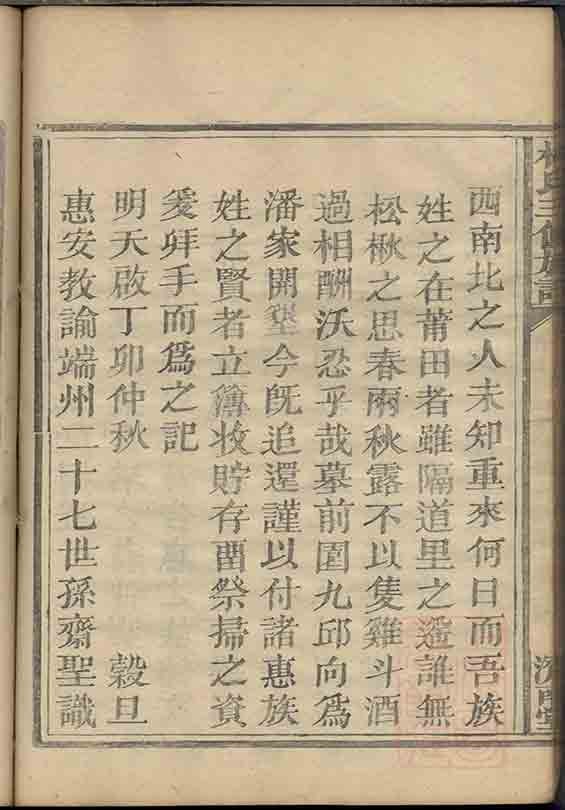 西南北之人未知重來何日而吾族
姓之在莆田者雖隔道里之遥誰無
松楸之思春雨秋露不以隻雞斗酒
過相酬沃忍乎哉墓前圍九邱向爲
潘家開墾今旣追還謹以付諸惠族
姓之賢者立簿收貯存畱祭掃之資
爰拜手而爲之記
明天啟丁卯仲秋 穀旦
惠安教諭端州二十七世孫齋聖識